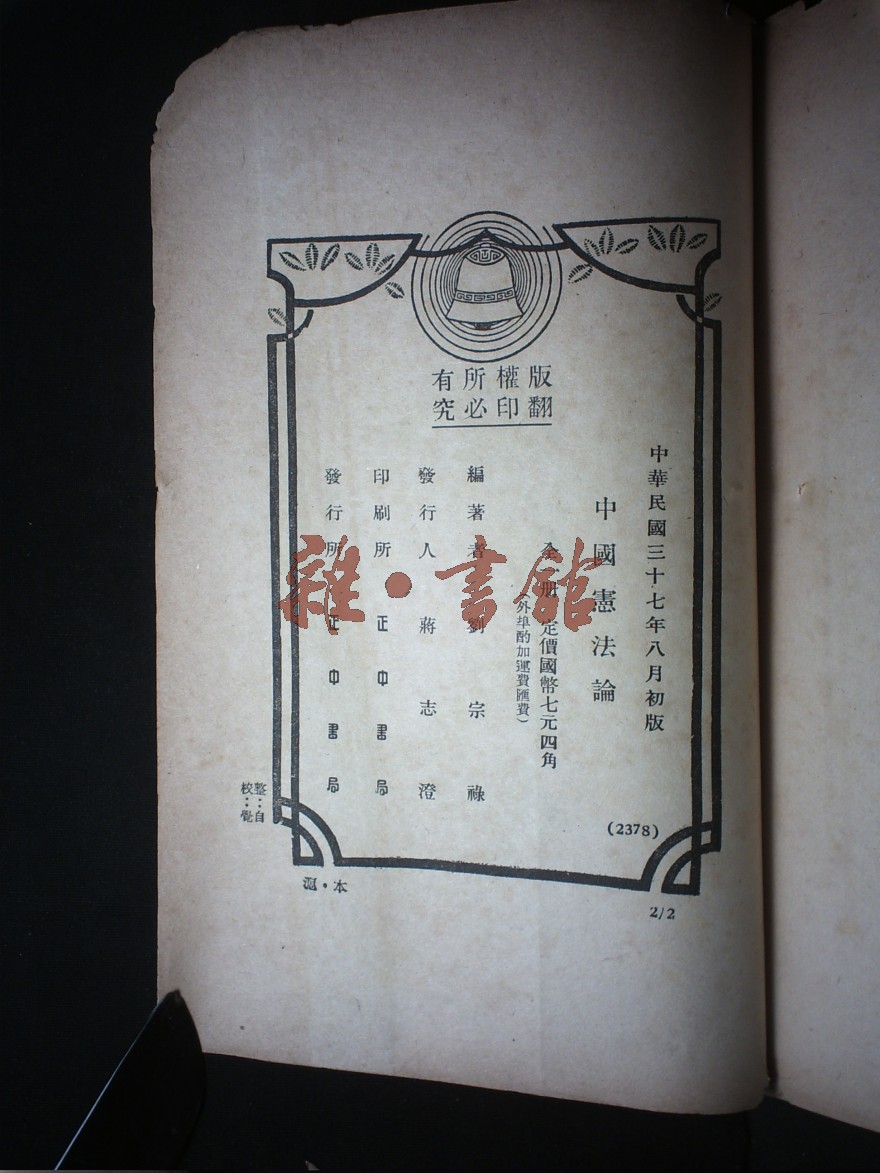 版權所有
翻印必究
中華民國三十七年八月初版
中國憲法論
全一册 定價國幣七元四角
(外埠酌加運費匯費)
編著者 劉宗祿
發行人 蔣志澄
印刷所 正中書局
發行所 正中書局
(2378)
整:自
校:
滬·本
2/2
雜·書館